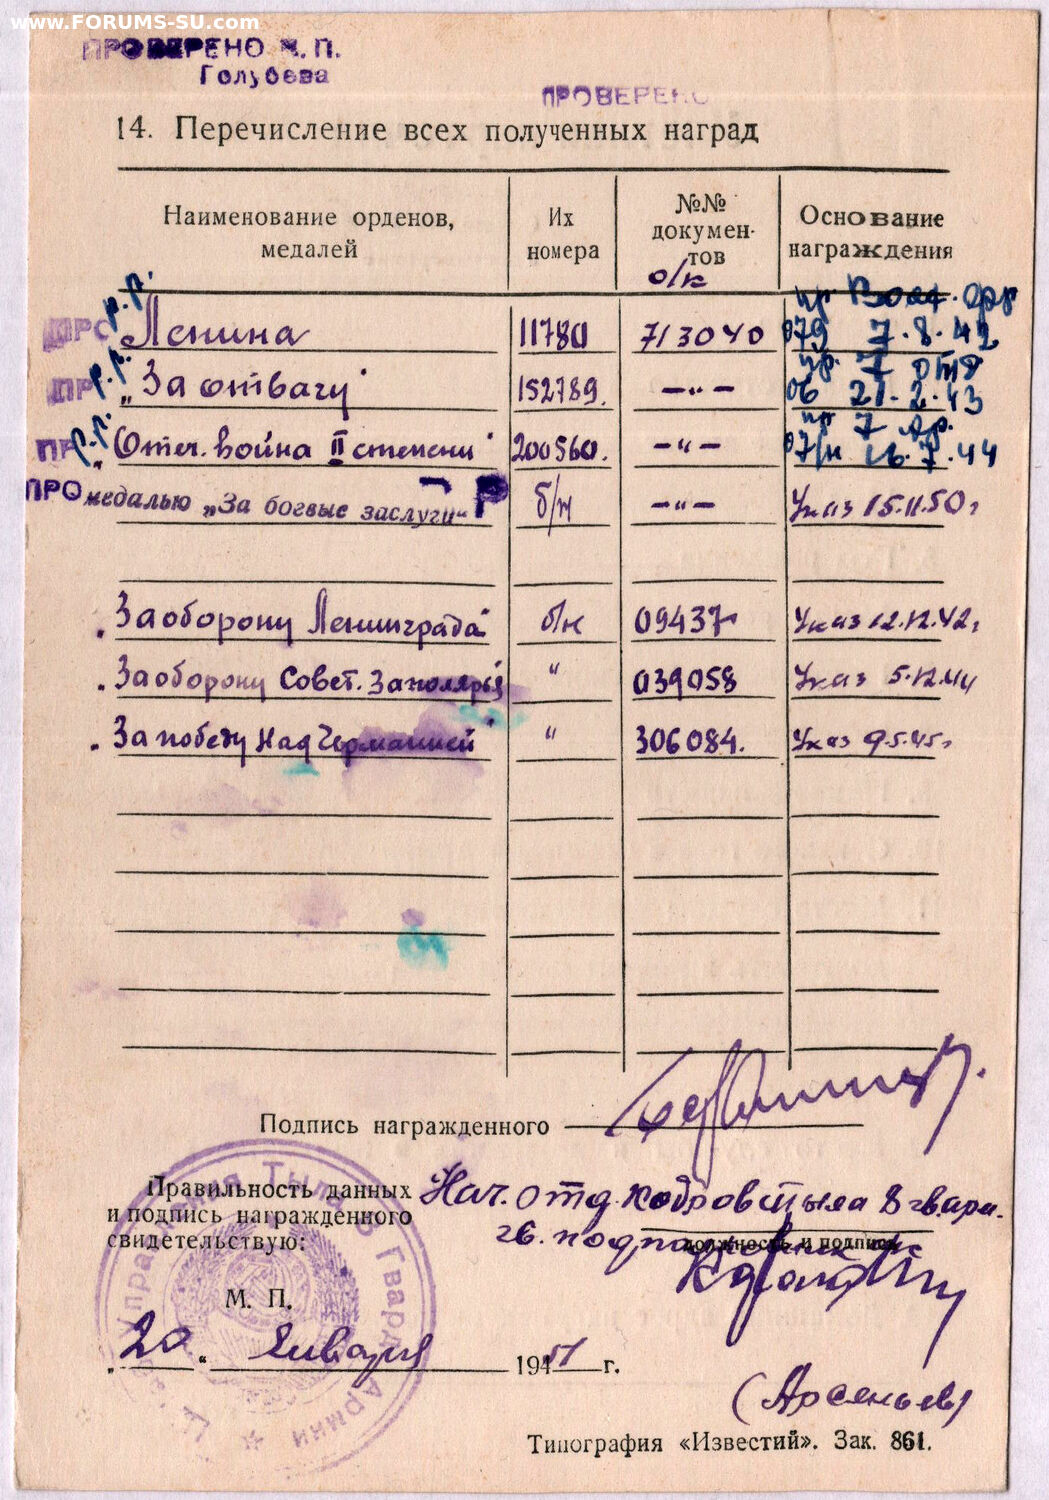 www.FORUMS-SU.com
ПРОВЕРЕНО К. П.
Голубева
ПРОВЕРЕНО
14. Перечисление всех полученных наград
Наименование орденов, медалей
Их номера
№№ документов
Основание награждения
о/к
р.р. пр Волх. фр
ПРО Ленина 11780 713040 079 7.8.42
р.р. пр. 7
ПР „За отвагу" 152789. —„— 06 21.2.43
р.р. пр 7
ПР „Отеч. война II степени" 200560. —„— 07/н 16.7.44
ПРО медалью „За боевые заслуги" б/н —„— Указ 15.11.50г
„За оборону Ленинграда" б/н 09437 Указ 12.12.42г
„За оборону Совет. Заполярья " 039058 Указ 5.12.44
„За победу над Германией" " 306084. Указ 9.5.45г
Подпись награжденного
Правильность данных
и подпись награжденного
свидетельствую:
Нач. отд. кадров тыла 8 гв. арм.
гв. подполковник
должность и подпись
М. П.
„20" Января 1951 г.
(Арсеньев)
Управления Тыла Гвард Армии
Типография «Известий». Зак. 861.